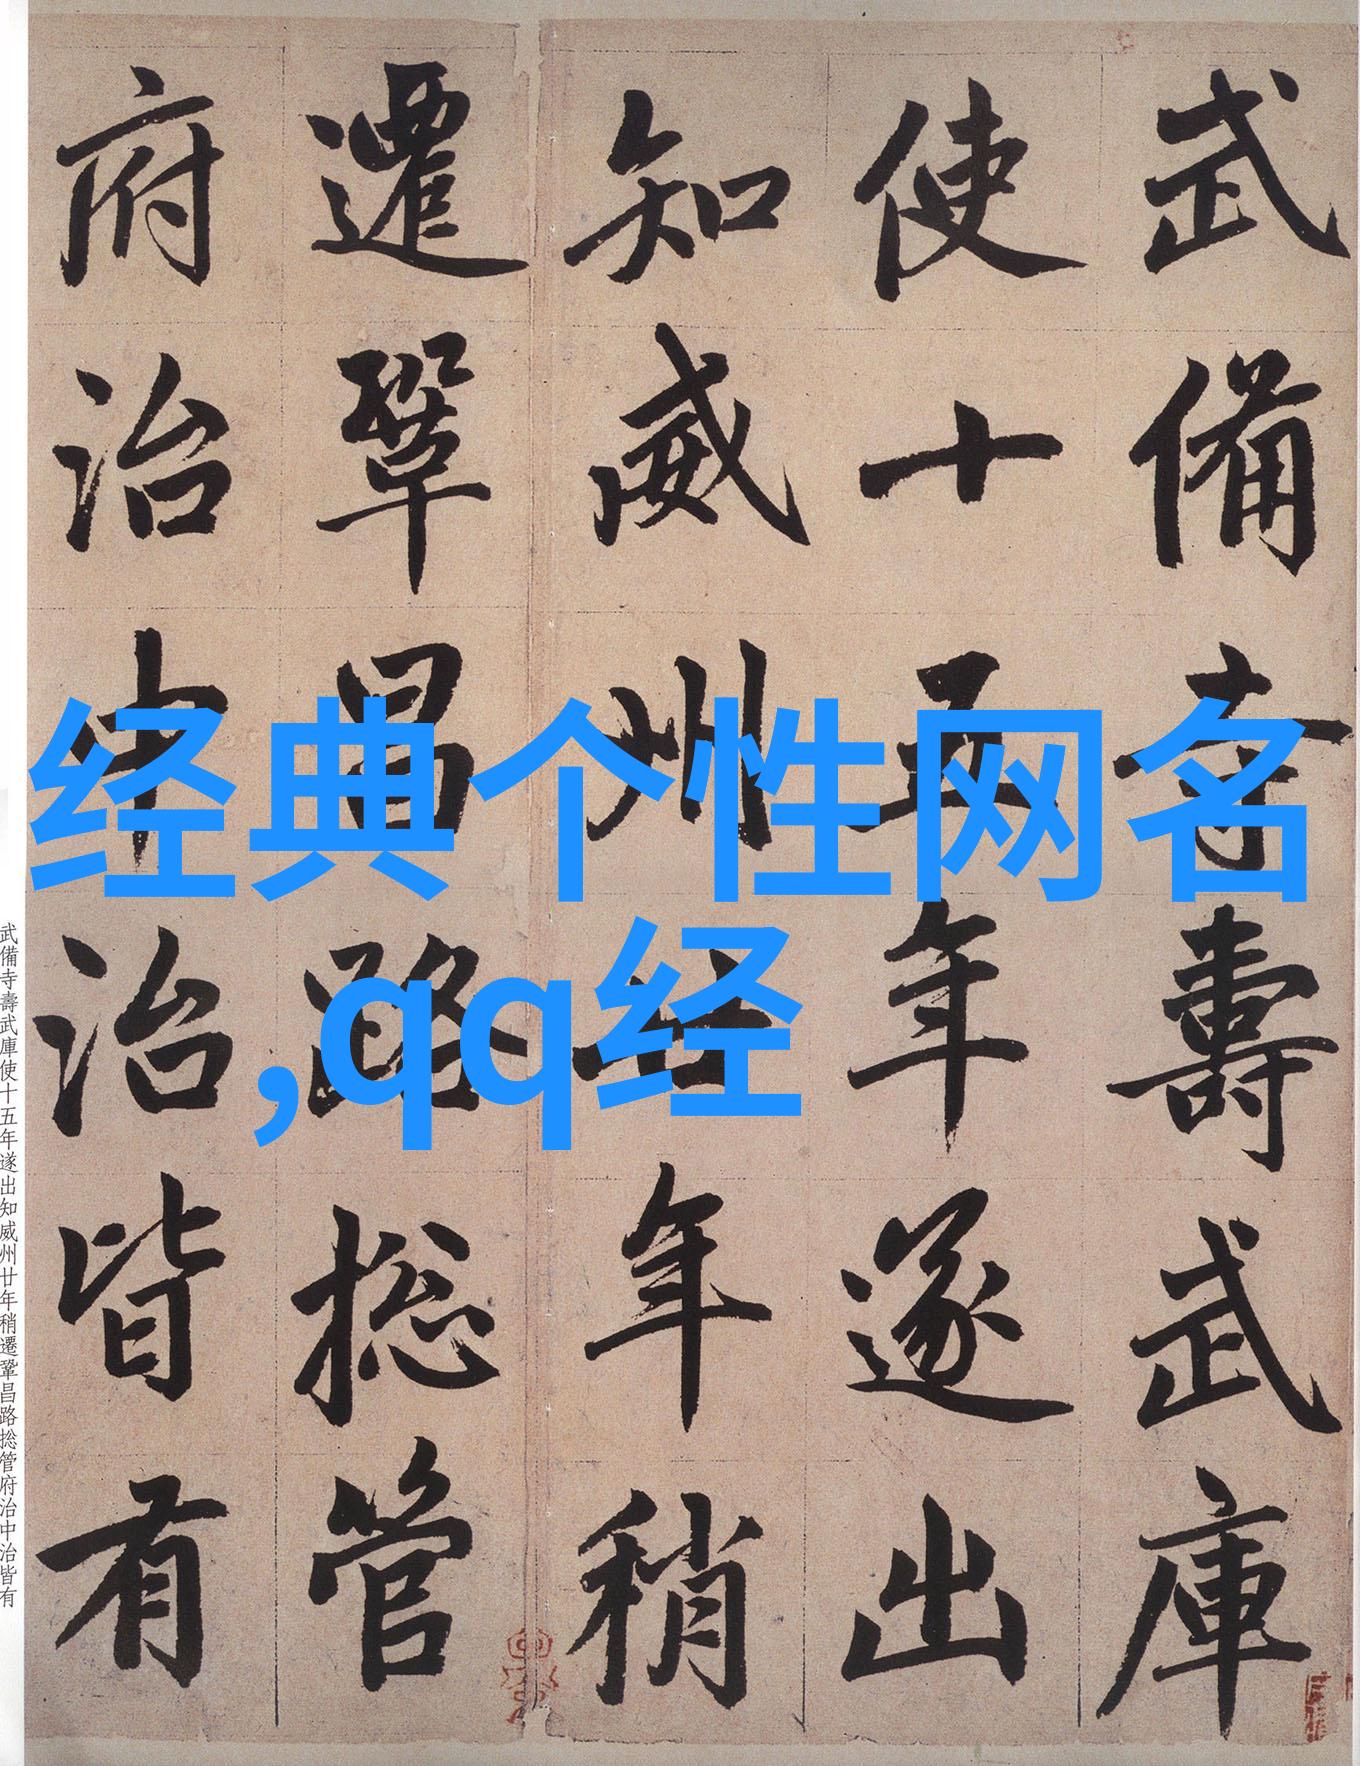 武備寺壽武庫
使十五年遂出
知威州廿年稍
遷鞏昌路捴管
府治中治皆有
经典个性网名
,qq经
武備寺壽武庫使十五年遂出知威州廿年稍遷鞏昌路捴管府治中治皆有